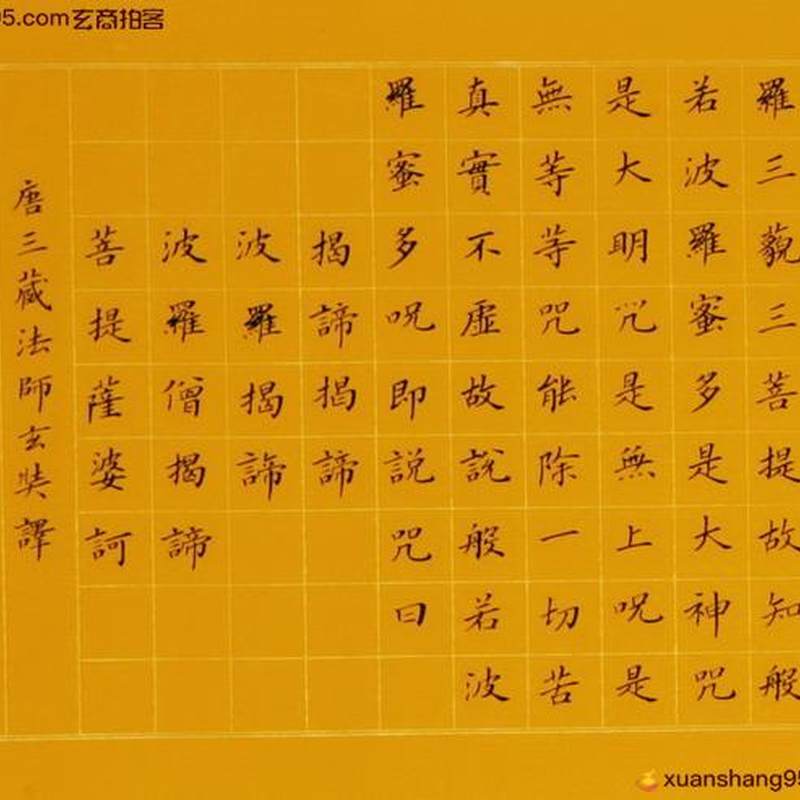 95.com玄商拍客
羅三藐三菩提故知般
若波羅蜜多是大神咒
是大明咒是無上呪是
無等等咒能除一切苦
真實不虛故說般若波
羅蜜多呪即説咒曰
揭諦揭諦
波羅揭諦
波羅僧揭諦
菩提薩婆訶
唐三藏法師玄奘譯
xuanshang95